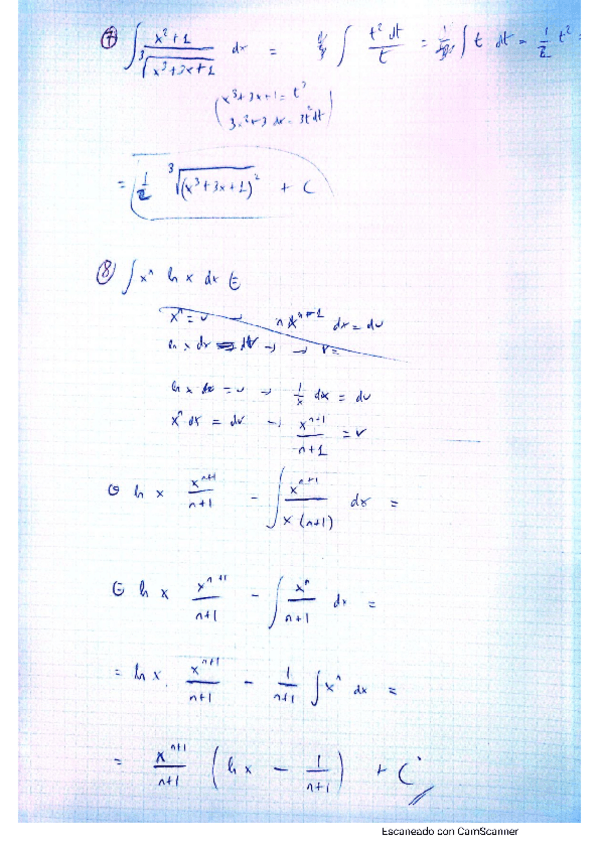 ⑦ ∫ x²+1 / ∛(x³+3x+1) dx = ∫ t² dt / t = ∫ t dt = 1/2 t² =
( x³+3x+1 = t³
3x²+3 dx = 3t² dt )
= 1/2 ∛(x³+3x+1)² + C
⑧ ∫ xⁿ ln x dx ⊜
xⁿ = u → n xⁿ⁻¹ dx = du
ln x dx = dv → → v =
ln x = u → 1/x dx = du
xⁿ dx = dv → xⁿ⁺¹ / n+1 = v
⊜ ln x xⁿ⁺¹ / n+1 − ∫ xⁿ⁺¹ / x (n+1) dx =
⊜ ln x xⁿ⁺¹ / n+1 − ∫ xⁿ / n+1 dx =
= ln x . xⁿ⁺¹ / n+1 − 1 / n+1 ∫ xⁿ dx =
= xⁿ⁺¹ / n+1 ( ln x − 1 / n+1 ) + C
Escaneado con CamScanner